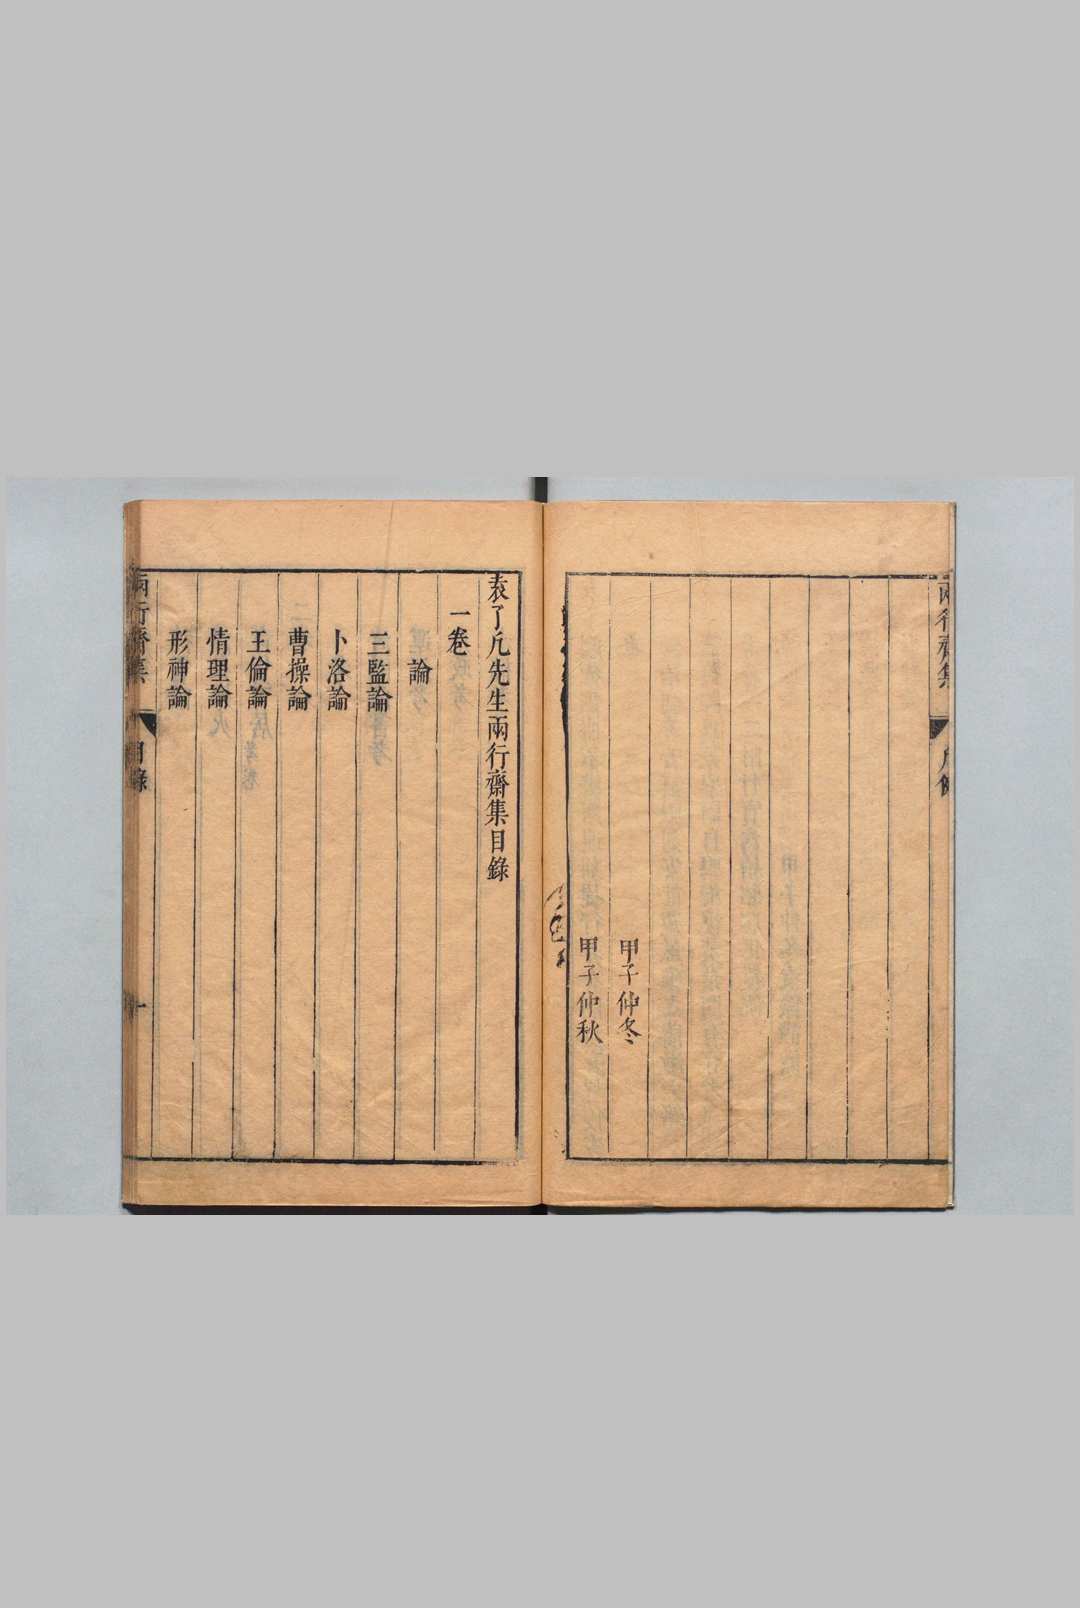 甲子仲冬
甲子仲秋
袁了凡先生兩行齋集目錄
一卷
論
三監論
卜洛論
曹操論
王倫論
情理論
形神論
兩行齋集
目錄
一